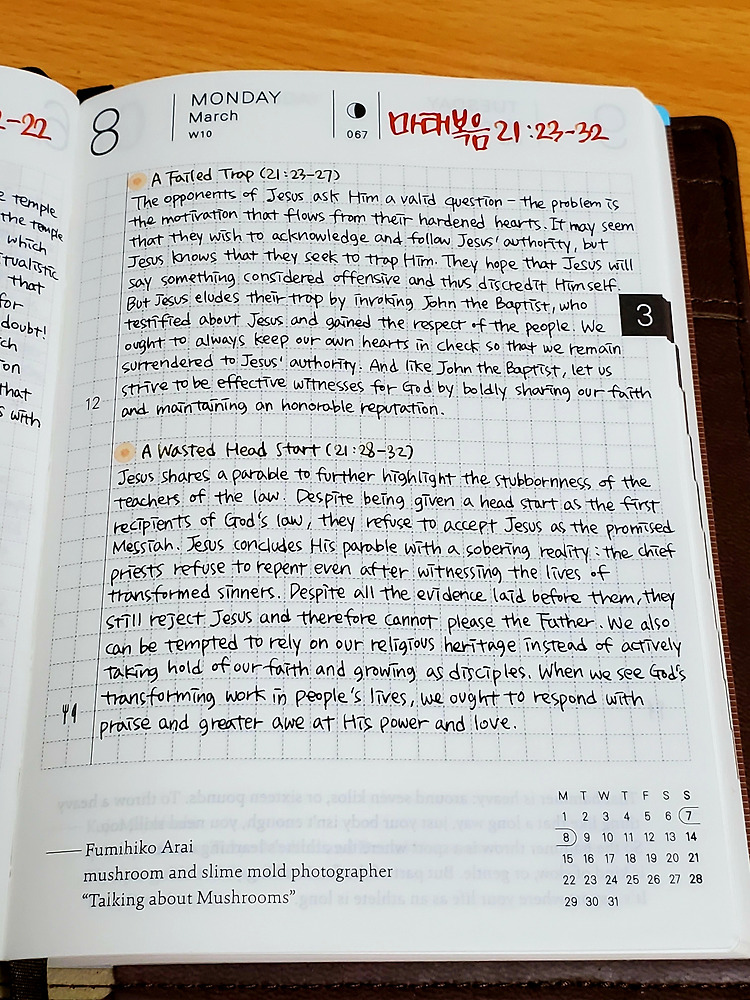 2-22
e temple
the temple
which
tualistic
that
for
doubt!
ch
ion
that
s with
8
MONDAY
March
W10
067
마태복음 21:23-32
A Failed Trap (21:23-27)
The opponents of Jesus ask Him a valid question - the problem is
the motivation that flows from their hardened hearts. It may seem
that they wish to acknowledge and follow Jesus' authority, but
Jesus knows that they seek to trap Him. They hope that Jesus will
say something considered offensive and thus discredit Himself.
But Jesus eludes their trap by invoking John the Baptist, who
testified about Jesus and gained the respect of the people. We
ought to always keep our own hearts in check so that we remain
surrendered to Jesus' authority. And like John the Baptist, let us
strive to be effective witnesses for God by boldly sharing our faith
and maintaining an honorable reputation.
3
12
A Wasted Head Start (21:28-32)
Jesus shares a parable to further highlight the stubbornness of the
teachers of the law. Despite being given a head start as the first
recipients of God's law, they refuse to accept Jesus as the promised
Messiah. Jesus concludes His parable with a sobering reality: the chief
priests refuse to repent even after witnessing the lives of
transformed sinners. Despite all the evidence laid before them, they
still reject Jesus and therefore cannot please the Father. We also
can be tempted to rely on our religious heritage instead of actively
taking hold of our faith and growing as disciples. When we see God's
transforming work in people's lives, we ought to respond with
praise and greater awe at His power and love.
M T W T F S S
1 2 3 4 5 6 7
8 9 10 11 12 13 14
15 16 17 18 19 20 21
22 23 24 25 26 27 28
29 30 31
—— Fumihiko Arai
mushroom and slime mold photographer
“Talking about Mushrooms”